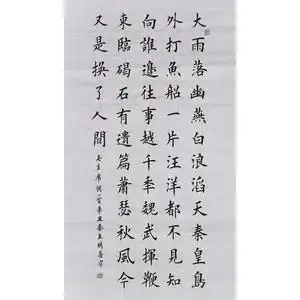 大雨落幽燕白浪滔天秦皇島
外打魚船一片汪洋都不見知
向誰邊往事越千秊魏武揮鞭
東臨碣石有遺篇蕭瑟秋風今
又是換了人間
毛主席詞一首辛丑春